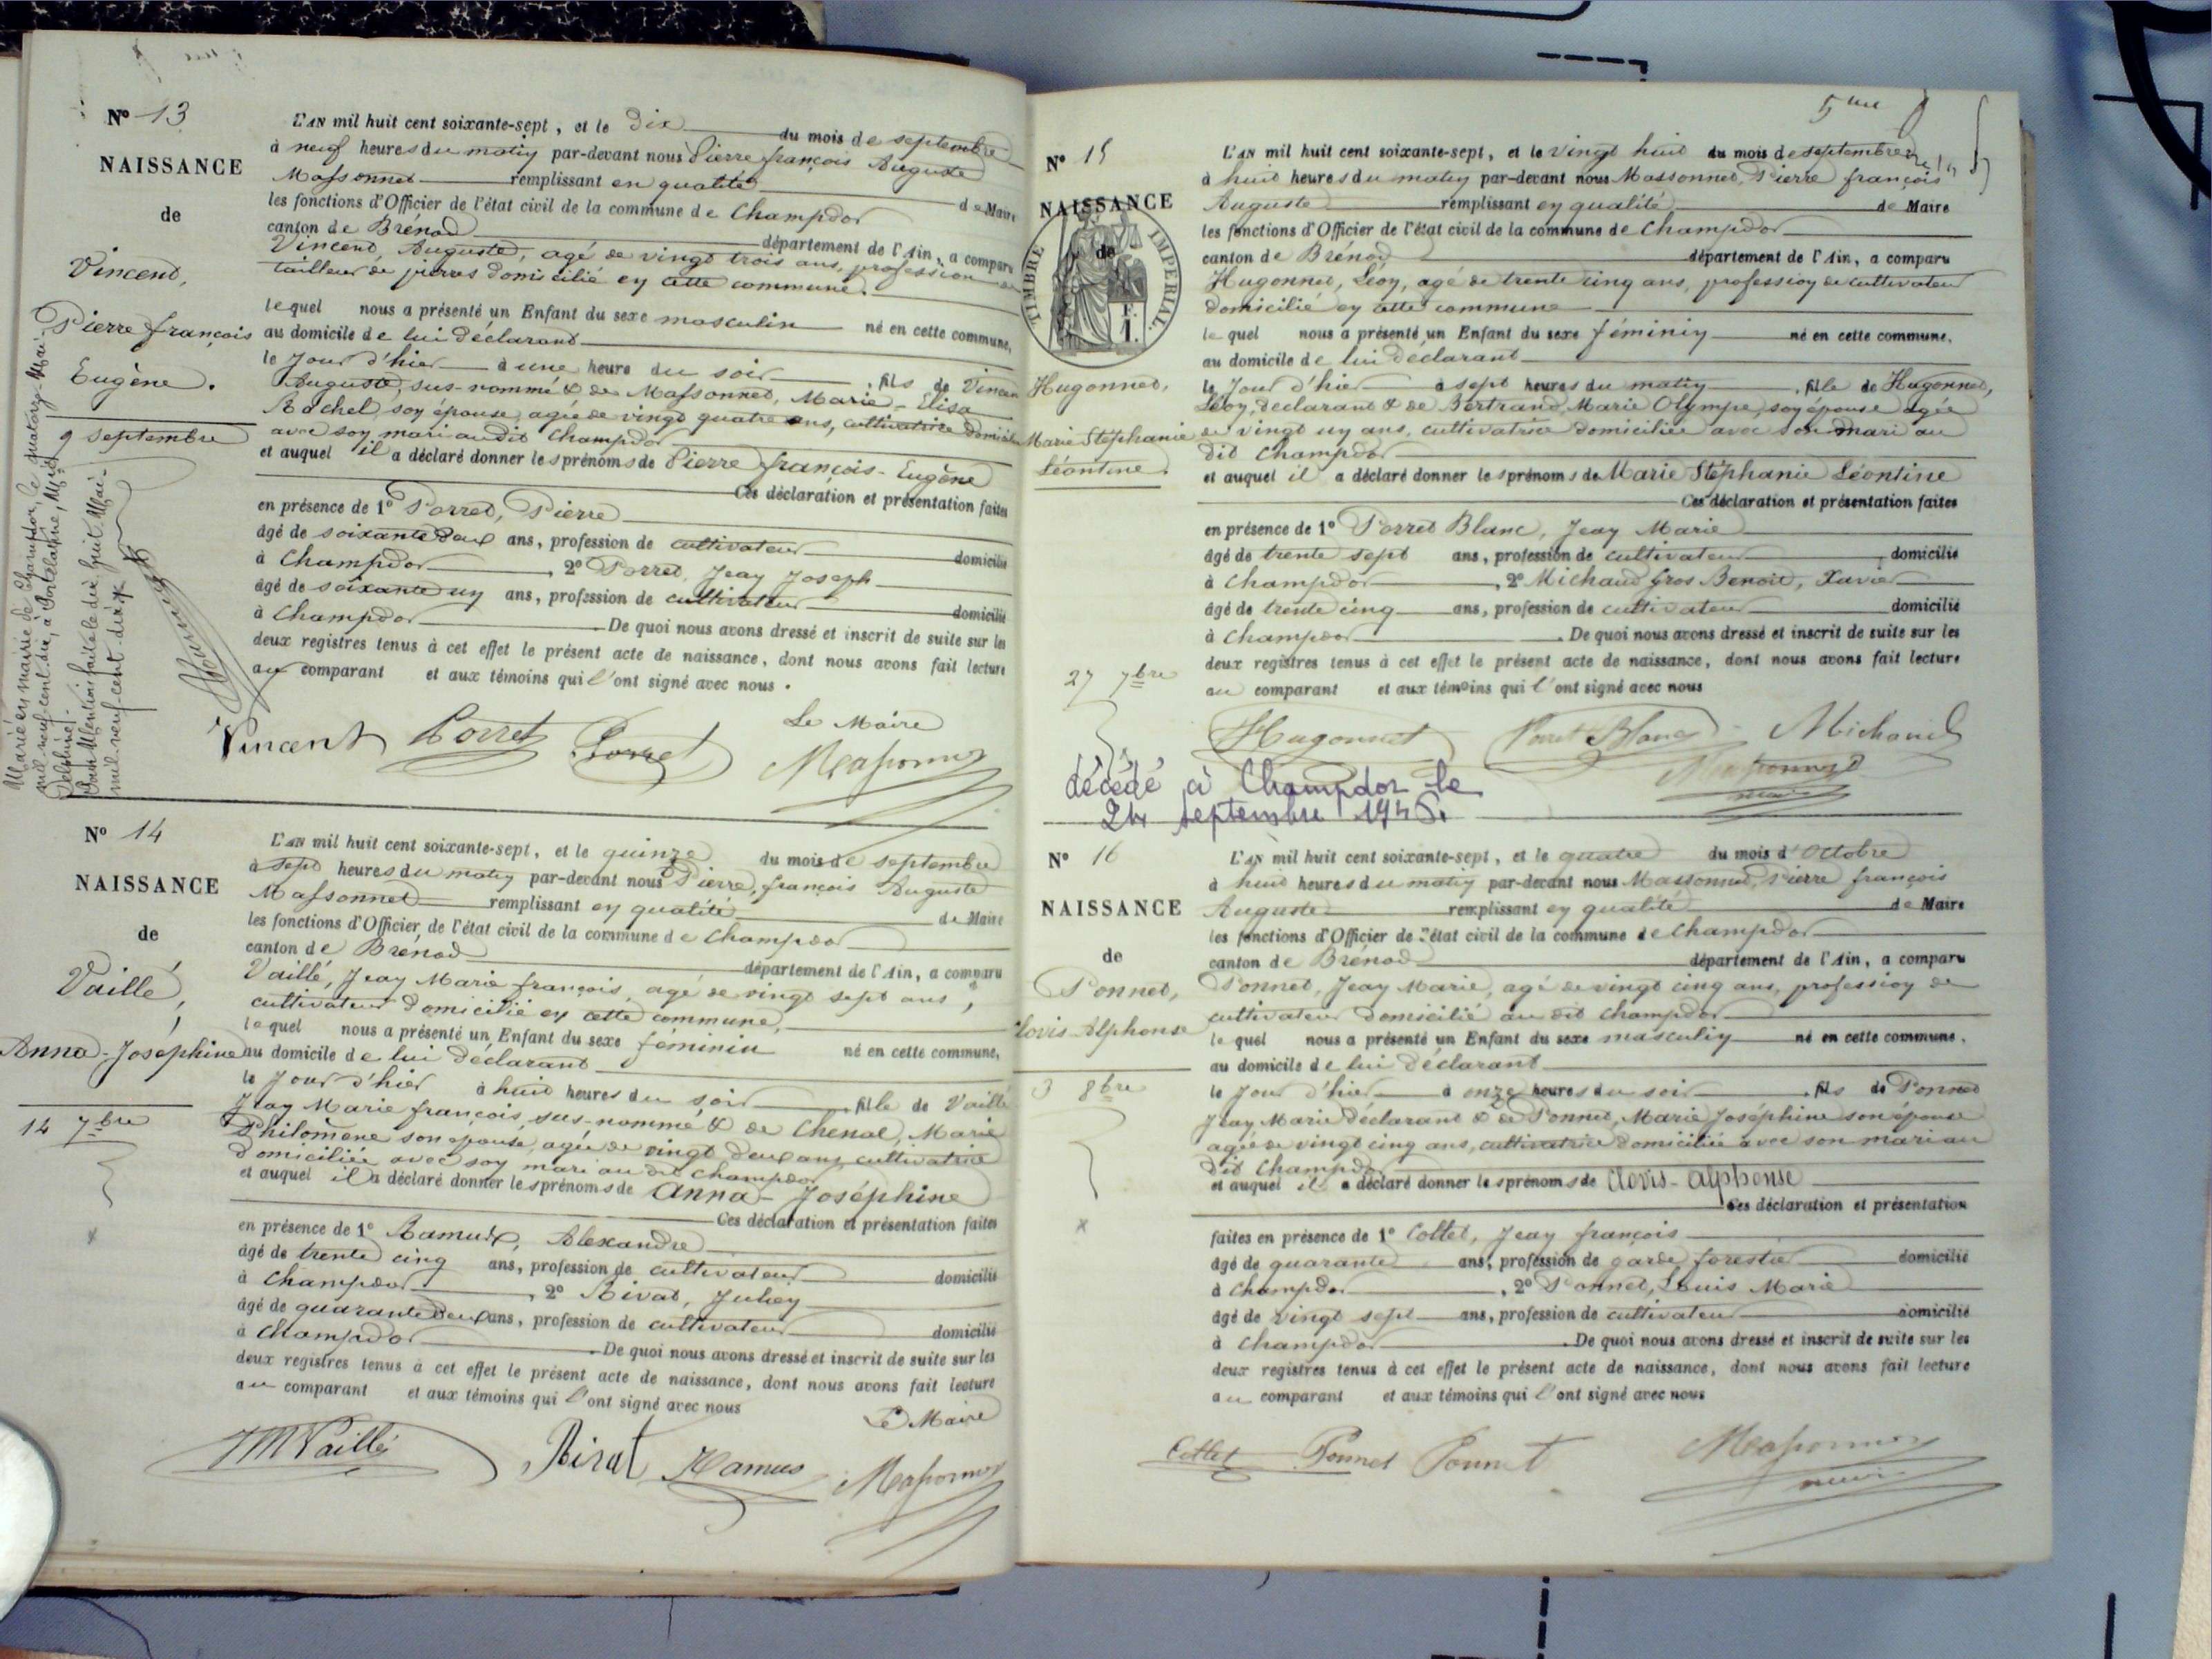 N° 13
NAISSANCE
de
Vincent,
Pierre françois
Eugène.
9 septembre
Marié en mairie de Champdor, le quatorze Mai
mil neuf cent dix, à
Delphine.
Pour Mention faite le dix huit Mai
mil neuf cent dix
L'AN mil huit cent soixante-sept, et le Dix du mois de septembre
à neuf heures du matin par-devant nous Pierre françois Auguste
Massonnet remplissant en qualité de Maire
les fonctions d'Officier de l'état civil de la commune de Champdor
canton de Brénod département de l'Ain, a comparu
Vincent, Auguste, agé de vingt trois ans, profession de
tailleur de pierres domicilié en cette commune.
lequel nous a présenté un Enfant du sexe masculin né en cette commune,
au domicile de lui déclarant
le Jour d'hier à une heure du soir, fils de Vincent
Auguste, sus-nommé & de Massonnet, Marie-Elisa
Rachel son épouse, agée de vingt quatre ans, cultivatrice domiciliée
avec son mari audit Champdor
et auquel il a déclaré donner les prénoms de Pierre françois-Eugène
Ces déclaration et présentation faites
en présence de 1° Porret, Pierre
âgé de soixante deux ans, profession de cultivateur domicilié
à Champdor, 2° Porret, Jean Joseph
âgé de soixante un ans, profession de cultivateur domicilié
à Champdor. De quoi nous avons dressé et inscrit de suite sur les
deux registres tenus à cet effet le présent acte de naissance, dont nous avons fait lecture
au comparant et aux témoins qui l'ont signé avec nous.
Le Maire
Vincent Porret Porret Massonnet
N° 14
NAISSANCE
de
Vaillé,
Anna-Joséphine
14 7bre
L'AN mil huit cent soixante-sept, et le quinze du mois de septembre
à sept heures du matin par-devant nous Pierre, françois Auguste
Massonnet remplissant en qualité de Maire
les fonctions d'Officier de l'état civil de la commune de Champdor
canton de Brénod département de l'Ain, a comparu
Vaillé, Jean Marie françois, agé de vingt sept ans,
cultivateur domicilié en cette commune,
lequel nous a présenté un Enfant du sexe féminin né en cette commune,
au domicile de lui déclarant
le Jour d'hier à huit heures du soir, fille de Vaillé
Jean Marie françois, sus-nommé & de Chenal, Marie
Philomène son épouse, agée de vingt deux ans, cultivatrice
domiciliée avec son mari au dit Champdor
et auquel il a déclaré donner les prénoms de Anna-Joséphine
Ces déclaration et présentation faites
en présence de 1° Ramus, Alexandre
âgé de trente cinq ans, profession de cultivateur domicilié
à Champdor, 2° Rivat, Julien
âgé de quarante deux ans, profession de cultivateur domicilié
à Champdor. De quoi nous avons dressé et inscrit de suite sur les
deux registres tenus à cet effet le présent acte de naissance, dont nous avons fait lecture
au comparant et aux témoins qui l'ont signé avec nous
Le Maire
JM Vaillé Rivat Ramus Massonnet
5me
N° 15
NAISSANCE
de
TIMBRE IMPERIAL
F.
1.
Hugonnet,
Marie Stéphanie
Léontine.
27 7bre
L'AN mil huit cent soixante-sept, et le vingt huit du mois de septembre
à huit heures du matin par-devant nous Massonnet, Pierre françois
Auguste remplissant en qualité de Maire
les fonctions d'Officier de l'état civil de la commune de Champdor
canton de Brénod département de l'Ain, a comparu
Hugonnet, Léon, agé de trente cinq ans, profession de cultivateur
domicilié en cette commune
lequel nous a présenté un Enfant du sexe féminin né en cette commune,
au domicile de lui déclarant
le Jour d'hier à sept heures du matin, fille de Hugonnet,
Léon, déclarant & de Bertrand, Marie Olympe, son épouse agée
de vingt un ans, cultivatrice domiciliée avec son mari au
dit Champdor
et auquel il a déclaré donner les prénoms de Marie Stéphanie Léontine
Ces déclaration et présentation faites
en présence de 1° Porret Blanc, Jean Marie
âgé de trente sept ans, profession de cultivateur, domicilié
à Champdor, 2° Michaud Gros Benoit, Xavier
âgé de trente cinq ans, profession de cultivateur domicilié
à Champdor. De quoi nous avons dressé et inscrit de suite sur les
deux registres tenus à cet effet le présent acte de naissance, dont nous avons fait lecture
au comparant et aux témoins qui l'ont signé avec nous
Hugonnet Porret Blanc Michaud
Massonnet
maire
décédé à Champdor le
24 septembre 1946.
N° 16
NAISSANCE
de
Ponnet,
Clovis Alphonse
3 8bre
L'AN mil huit cent soixante-sept, et le quatre du mois d'Octobre
à huit heures du matin par-devant nous Massonnet, Pierre françois
Auguste remplissant en qualité de Maire
les fonctions d'Officier de l'état civil de la commune de Champdor
canton de Brénod département de l'Ain, a comparu
Ponnet, Jean Marie, agé de vingt cinq ans, profession de
cultivateur domicilié au dit Champdor
lequel nous a présenté un Enfant du sexe masculin né en cette commune,
au domicile de lui déclarant
le Jour d'hier à onze heures du soir, fils de Ponnet
Jean Marie déclarant & de Ponnet, Marie Joséphine son épouse
agée de vingt cinq ans, cultivatrice domiciliée avec son mari au
dit Champdor
et auquel il a déclaré donner les prénoms de Clovis-Alphonse
Ces déclaration et présentation
faites en présence de 1° Collet, Jean françois
âgé de quarante ans, profession de garde forestier domicilié
à Champdor, 2° Ponnet, Louis Marie
âgé de vingt sept ans, profession de cultivateur domicilié
à Champdor. De quoi nous avons dressé et inscrit de suite sur les
deux registres tenus à cet effet le présent acte de naissance, dont nous avons fait lecture
au comparant et aux témoins qui l'ont signé avec nous
Collet Ponnet Ponnet Massonnet
maire